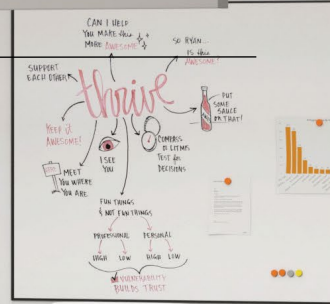 CAN I HELP
YOU MAKE this
MORE AWESOME
SO RYAN...
IS this
AWESOME?
SUPPORT
EACH OTHER
thrive
PUT
SOME
SAUCE
ON THAT!
KEEP it
AWESOME!
I SEE
YOU
COMPASS
& LITMUS
TEST for
DECISIONS
MEET
YOU WHERE
YOU ARE
FUN THINGS
& NOT FUN THINGS
PROFESSIONAL PERSONAL
HIGH LOW HIGH LOW
VULNERABILITY
BUILDS TRUST